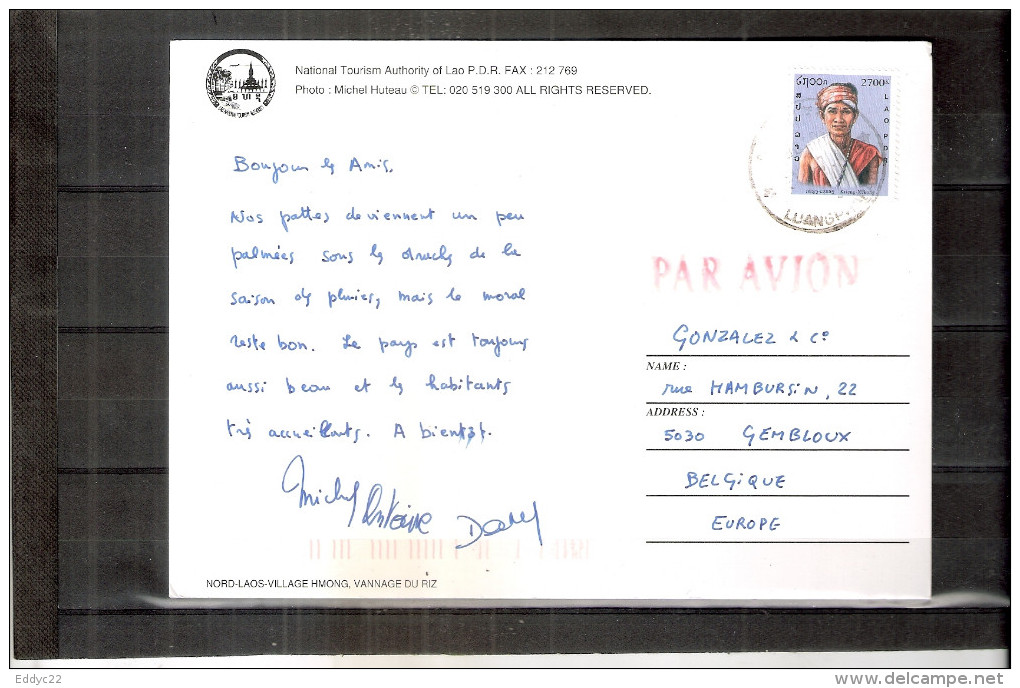 National Tourism Authority of Lao P.D.R. FAX : 212 769
Photo : Michel Huteau © TEL: 020 519 300 ALL RIGHTS RESERVED.
2700k
LAO PDR
ສປປ ລາວ
LUANGP
PAR AVION
Bonjour les Amis.
Nos pattes deviennent un peu
palmées sous les douches de la
saison des pluies, mais le moral
reste bon. Le pays est toujours
aussi beau et les habitants
très accueillants. A bientôt.
Michel Antoine
GONZALEZ & C°
NAME :
rue HAMBURSIN, 22
ADDRESS :
5030 GEMBLOUX
BELGIQUE
EUROPE
NORD-LAOS-VILLAGE HMONG, VANNAGE DU RIZ
Eddyc22
delcampe.net